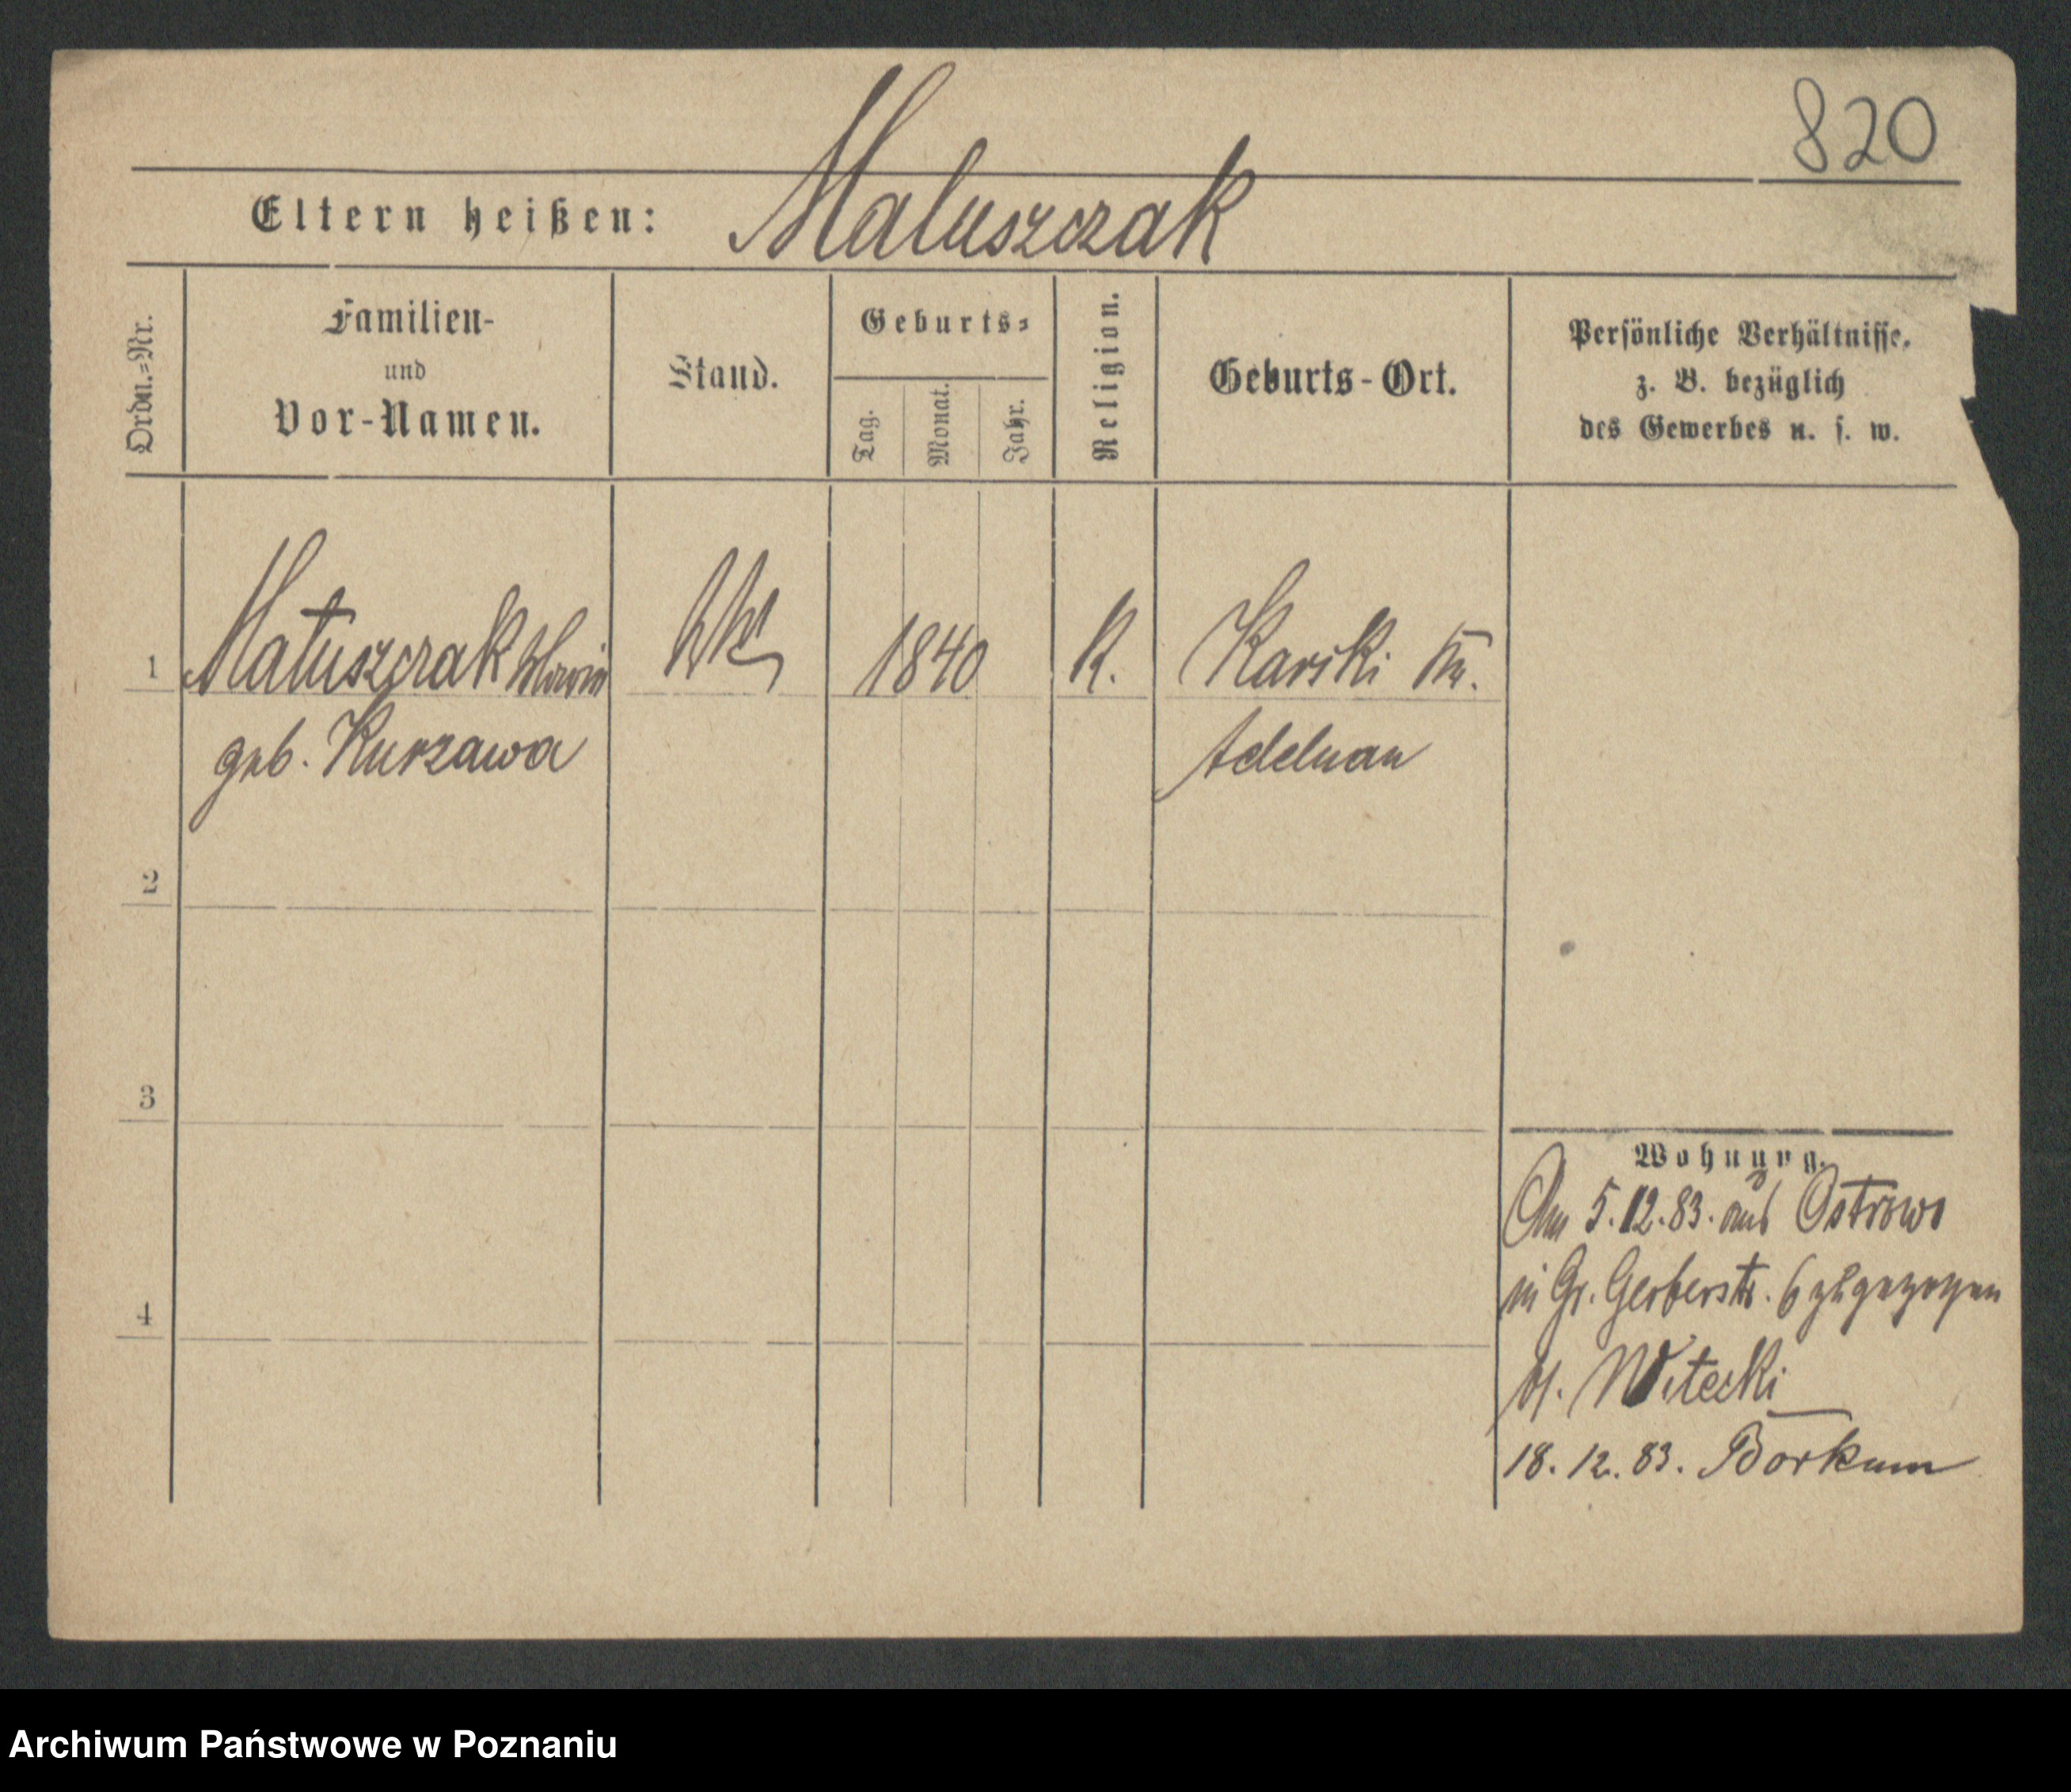 820
Eltern heißen: Matuszczak
Ordn.=Nr.
Familien-
und
Vor-Namen.
Stand.
Geburts=
Tag.
Monat.
Jahr.
Religion.
Geburts-Ort.
Persönliche Verhältnisse.
z. B. bezüglich
des Gewerbes u. s. w.
1 Matuszczak Maria 1840 K. Karski Kr.
geb. Kurzawa Adelnau
2
3
4
Wohnung.
Am 5.12.83. aus Ostrowo
in Gr. Gerberstr. 6 zugezogen
Witecki
18. 12. 83. Borkum
Archiwum Państwowe w Poznaniu